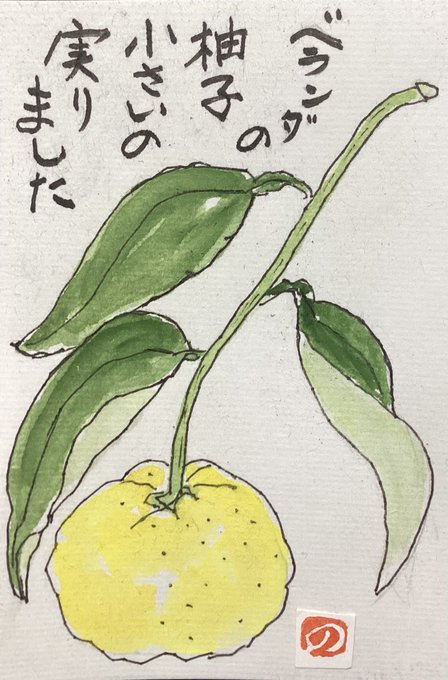 ベランダの
柚子
小さいの
実り
ました
の